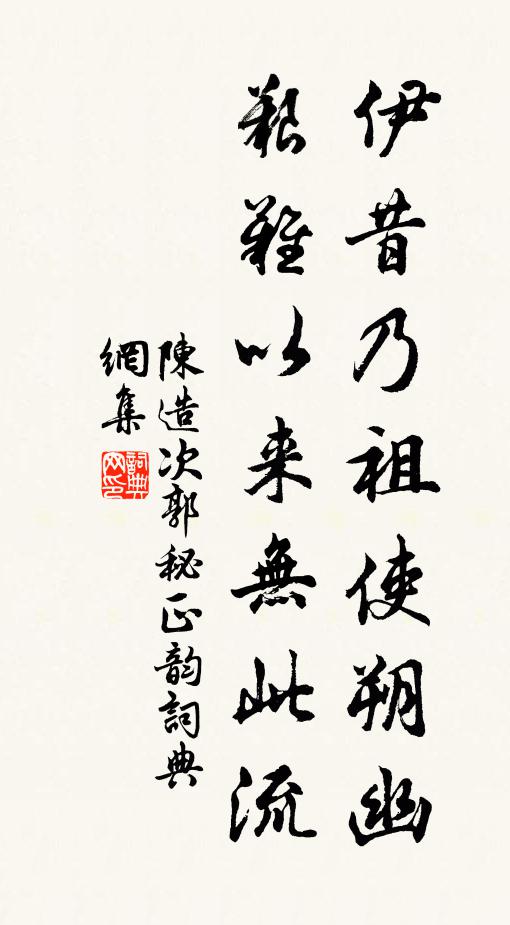 伊昔乃祖使朔幽
艱難以来無此流
陳造次郭秘正韵詞典
網集
詞典
网印